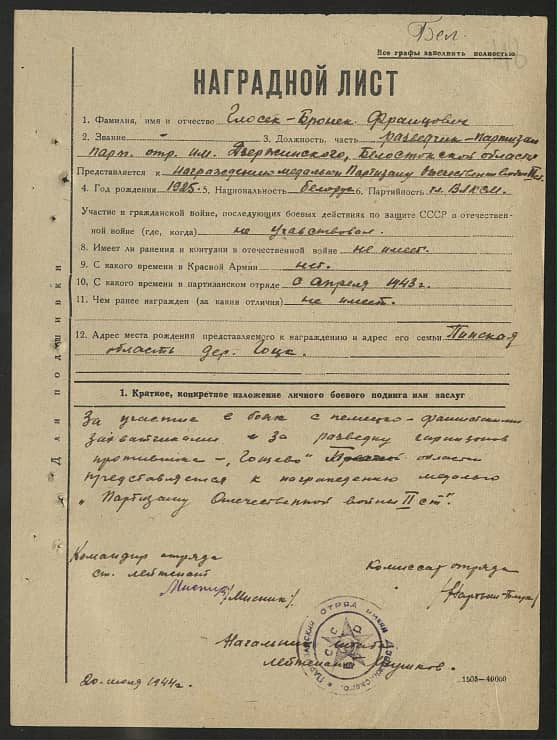 Бел.
Все графы заполнить полностью
НАГРАДНОЙ ЛИСТ
1. Фамилия, имя и отчество Глосек-Бронек Францович
2. Звание " 3. Должность, часть разведчик-партизан
парт. отр. им. Дзержинского, Белостокской области
Представляется к награждению медалью Партизану Отечественной войны II ст.
4. Год рождения 1925. 5. Национальность белорус 6. Партийность чл. ВЛКСМ.
Участие в гражданской войне, последующих боевых действиях по защите СССР и отечествен-
ной войне (где, когда) не участвовал.
8. Имеет ли ранения и контузии в отечественной войне не имеет.
9. С какого времени в Красной Армии нет.
10. С какого времени в партизанском отряде с апреля 1943 г.
11. Чем ранее награжден (за какия отличия) не имеет.
12. Адрес места рождения представляемого к награждению и адрес его семьи Пинская
область дер. Гоща.
Для подшивки
1. Краткое, конкретное изложение личного боевого подвига или заслуг
За участие в боях с немецко-фашистскими
захватчиками и за разведку гарнизонов
противника - "Гощево" области
представляется к награждению медалью
"Партизану Отечественной войны II ст".
Командир отряда
ст. лейтенант
/Мисник/.
Комиссар отряда
Начальник штаба
лейтенант
ПАРТИЗАНСКИЙ ОТРЯД ИМЕНИ ДЗЕРЖИНСКОГО
СССР
20. июля 1944 г.
1505—40000